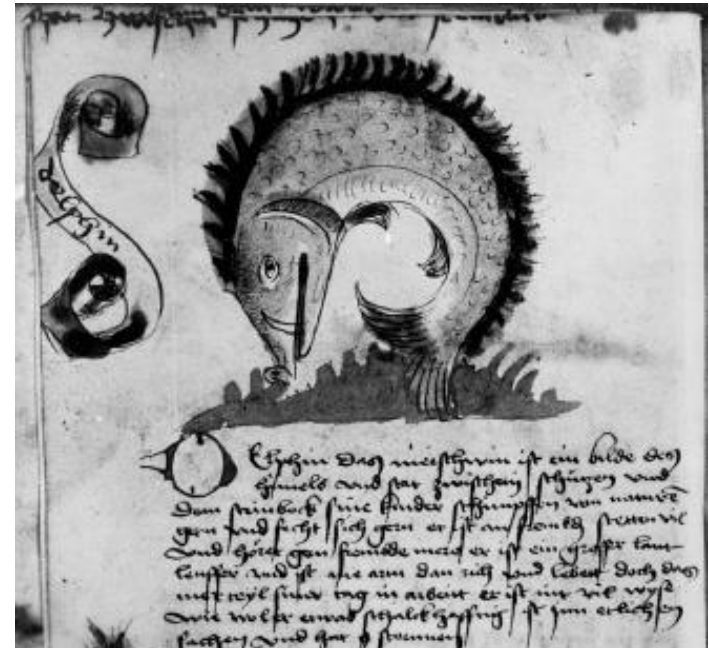 delphin
Elphin das merschwin ist ein bilde des
himels vnd stat zwischem schützen vnd
dem steinbock sine kinder schimpffen von naturē
gern vnd sicht sich gern er ist an frembdē stetten vil
vnd höret gern frembde mere er ist ein grosser lant
leuffer vnd ist me arm dan rich vnd lebett doch das
merteyl siner tag in arbeit er ist nit vil wyse
wie wol er etwas schalckhafftig ist jnn etlichen
sachen vnd hat